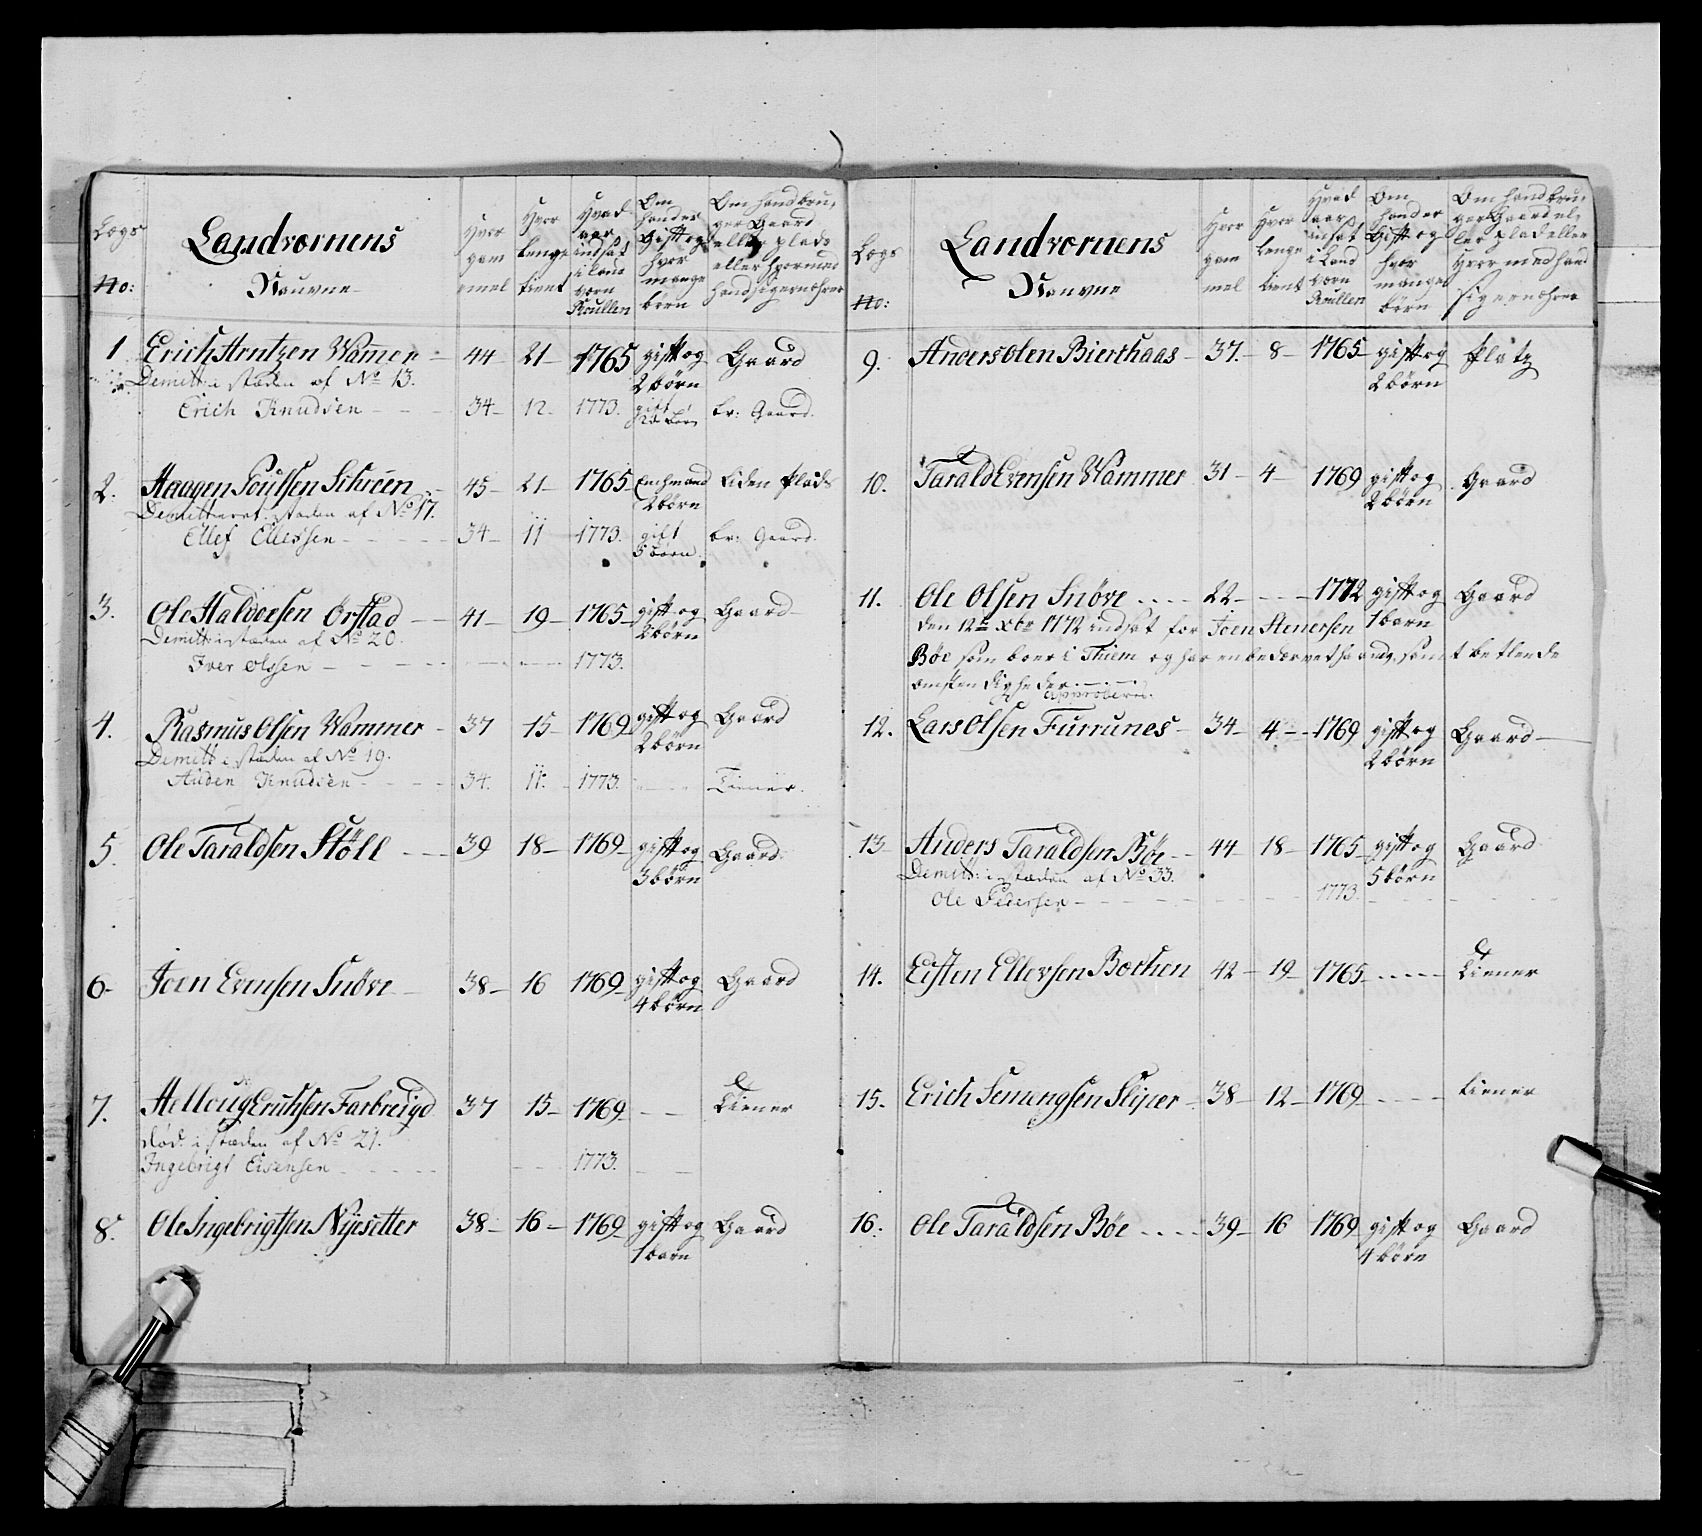 Lægs No:
Landvernens Nauvne
Hvor gammel
Hvor lenge tient
Hvad aar indsat i land værn Roullen
Om hand er gift og hvor mange børn
Om hand bruger Gaard eller plads eller hvormed hand sig ernæhrer
1 Erich Arntzen Wammer - 44 - 21 - 1765 gift og 2 børn Gaard
Demitt: i stæden af No 13.
Erich Knudsen - - - 34 - 12 - 1773. gift br: Gaard.
2. Haagen Poulsen Schreen - 45 - 21 - 1765 Enchmand 2 børn Liden plads
Demitteret i stæden af No 17.
Ellef Ellefsen - - - 34 - 11 1773. gift 5 børn. br: Gaard.
3. Ole Haldorsen Ørstad - 41 - 19 - 1765 gift og 2 børn Gaard
Demitt: i stæden af No 20.
Iver Olssen - - - 1773.
4. Rasmus Olsen Wammer - 37 15 - 1769 gift og 2 børn Gaard
Demitt: i stæden af No 19.
Auden Knudsen - - - 34. 11. 1773. - - - Tiener.
5. Ole Taraldsen Stöll - 39 18 - 1769 - gift og 3 børn Gaard.
6. Joen Evensen Snöve - 38 - 16 1769 - gift og 4 børn Gaard
7. Helloug Erichsen Farbreigd 37 15 - 1769 - - - Tiener
død. i stæden af No 21.
Ingebrigt Eisensen - - - 1773. - -
8. Ole Ingebrigtsen Nyesetter 38 - 16 - 1769 - gift og 1 barn Gaard
Lægs No:
Landvernens Nauvne
Hvor gammel
Hvor lenge tient
Hvad aar indsat i Land værn Roullen
Om hand er Gift og hvor mange børn
Om hand bruger Gaard eller plads eller hvor med hand sig ernæhrer
9. Anders Olen Bierthaas - 37. - 8 - 1765 - gift og 2 børn platz
10. Tarald Evensen Wammer 31 - 4 - 1769 gift og 2 børn Gaard
11. Ole Olsen Snöve .... 22 - - - 1772 gift og 1 barn Gaard
den 12te Xbr 1772 indsat for Joen Stenersen
Bøe som boer i Thiem og har en bedærvet haand, samt betlende
omstendigheder ......
approberes.
12. Lars Olsen Furrunes - 34 - 4 - - 1769 gift og 2 børn Gaard
13 Anders Taraldsen Bøe - 44 - 18 - 1765 - gift og 5 børn Gaard
Demitt: i stæden af No 33.
Ole Pedersen - - - 1773. - - -
14. Eisten Ellevsen Bochen 42 - 19 - 1765 - - - Tiener
15. Erich Semmingsen Sliper - 38 - 12 - 1769 - - - tiener
16. Ole Taraldsen Bøe .... 39 - 16 1769 gift og 4 børn Gaard